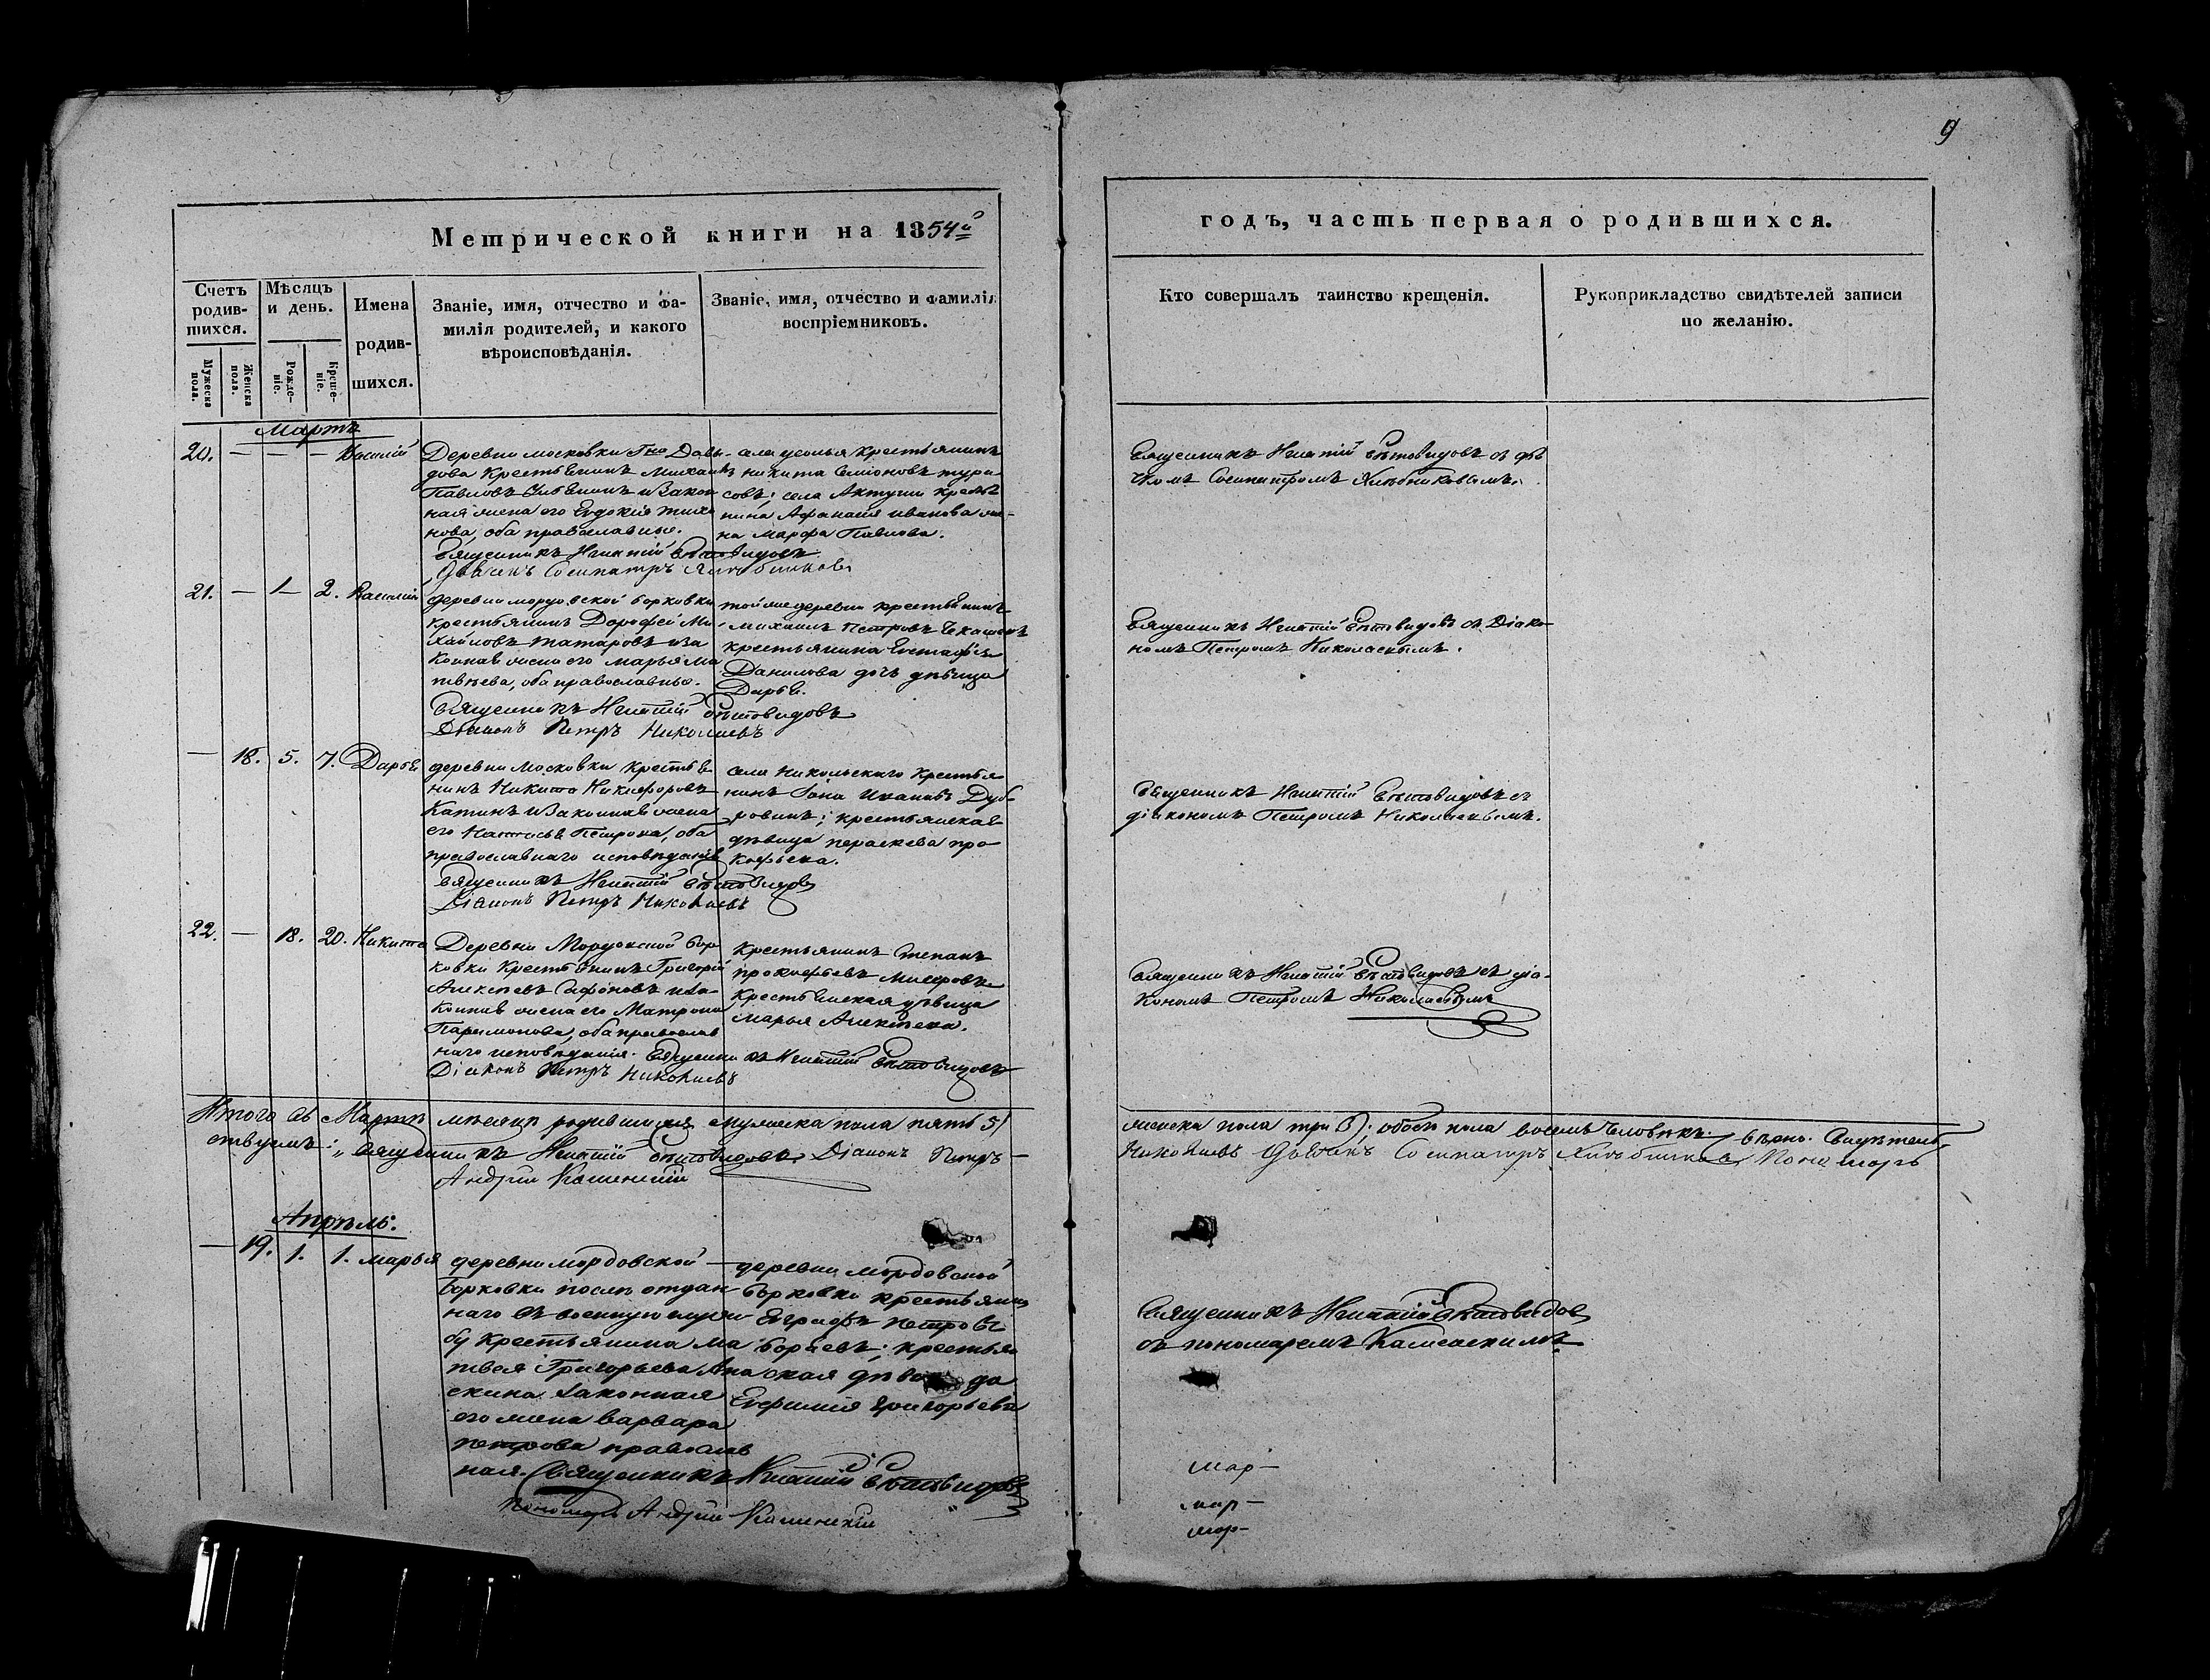 9
Метрической книги на 1854й
годъ, часть первая о родившихся.
Счетъ родив-шихся.
Мужеска пола.
Женска пола.
Мѣсяцъ и день.
Рожде-ніе.
Креще-ніе.
Имена родив-шихся.
Званіе, имя, отчество и фа-
милія родителей, и какого
вѣроисповѣданія.
Званіе, имя, отчество и фамилія
воспріемниковъ.
Кто совершалъ таинство крещенія.
Рукоприкладство свидѣтелей записи
по желанію.
Мартъ
20. — — — Василій
Деревни московки Гна Давы-
дова Крестьянинъ Михаилъ
Павловъ и закон
ная жена его Евдокія Тихо
нова, оба православные.
Священникъ Игнатій Свѣтовидовъ
Дьячекъ Сосипатръ Хлѣбниковъ
села усолья крестьянинъ
никита Семіоновъ тура
совъ; села Актуши крестья
нина Афанасія иванова же-
на Марфа Павлова.
Священникъ Игнатій Свѣтовидовъ съ дья
чкомъ Сосипатромъ Хлѣбниковымъ.
21. — 1 — 2. Василій
деревни мордовской борковки
крестьянинъ Дорофей Ми-
хайловъ татаровъ и за
конная жена его марья Ма
твѣева, оба православные.
Священникъ Игнатій Свѣтовидовъ
Діаконъ Петръ Николаевъ
той же деревни крестьянинъ
михаилъ Петровъ
крестьянина Евстафія
Данилова дочь дѣвица
Дарья.
Священникъ Игнатій Свѣтовидовъ съ Діако-
номъ Петромъ Николаевымъ.
— 18. 5. 7. Дарья
деревни Московки крестья
нинъ Никита Никифоровъ
Катинъ и законная жена
его Наталья Петрова, оба
православнаго исповѣданія
Священникъ Игнатій Свѣтовидовъ
Діаконъ Петръ Николаевъ
села Никольскаго Крестья
нинъ Іона Ивановъ Дуб-
ровинъ; крестьянская
дѣвица пераскева про
кофьева.
Священникъ Игнатій Свѣтовидовъ съ
діакономъ Петромъ Николаевымъ.
22. — 18. 20. Никита
Деревни Мордовской бор
ковки Крестьянинъ Григорій
Алексѣевъ Сафоновъ и за-
конная жена его Матрона
Парамонова, оба православ
наго исповѣданія. Священникъ Игнатій Свѣтовидовъ
Діаконъ Петръ Николаевъ
Крестьянинъ Степанъ
прокофьевъ
крестьянская дѣвица
марья Алексѣева.
Священникъ Игнатій Свѣтовидовъ съ діа-
кономъ Петромъ Николаевымъ
Итого въ Мартѣ мѣсяцѣ родившихся мужеска пола пять 5)
женска пола три 3). обоего пола восемь человѣкъ. вѣрно. Свидѣтель-
ствуемъ: Священникъ Игнатій Свѣтовидовъ Діаконъ Петръ
Николаевъ Дьячекъ Сосипатръ Хлѣбниковъ Пономарь
Андрей Каменскій
Апрѣль.
— 19. 1. 1. марья
деревни мордовской
борковки послѣ отдан
наго въ военную служ
бу крестьянина Ма
твея Григорьева Ана
скина законная
его жена варвара
петрова православ
ная. Священникъ Игнатій Свѣтовидовъ
Пономарь Андрей Каменскій
деревни мордовской
борковки крестьянинъ
Евграфъ петровъ
крестьян
ская дѣвица
Евфимія Григорьева
Священникъ Игнатій Свѣтовидовъ
съ пономаремъ Каменскимъ
мар-
мар-
мар-